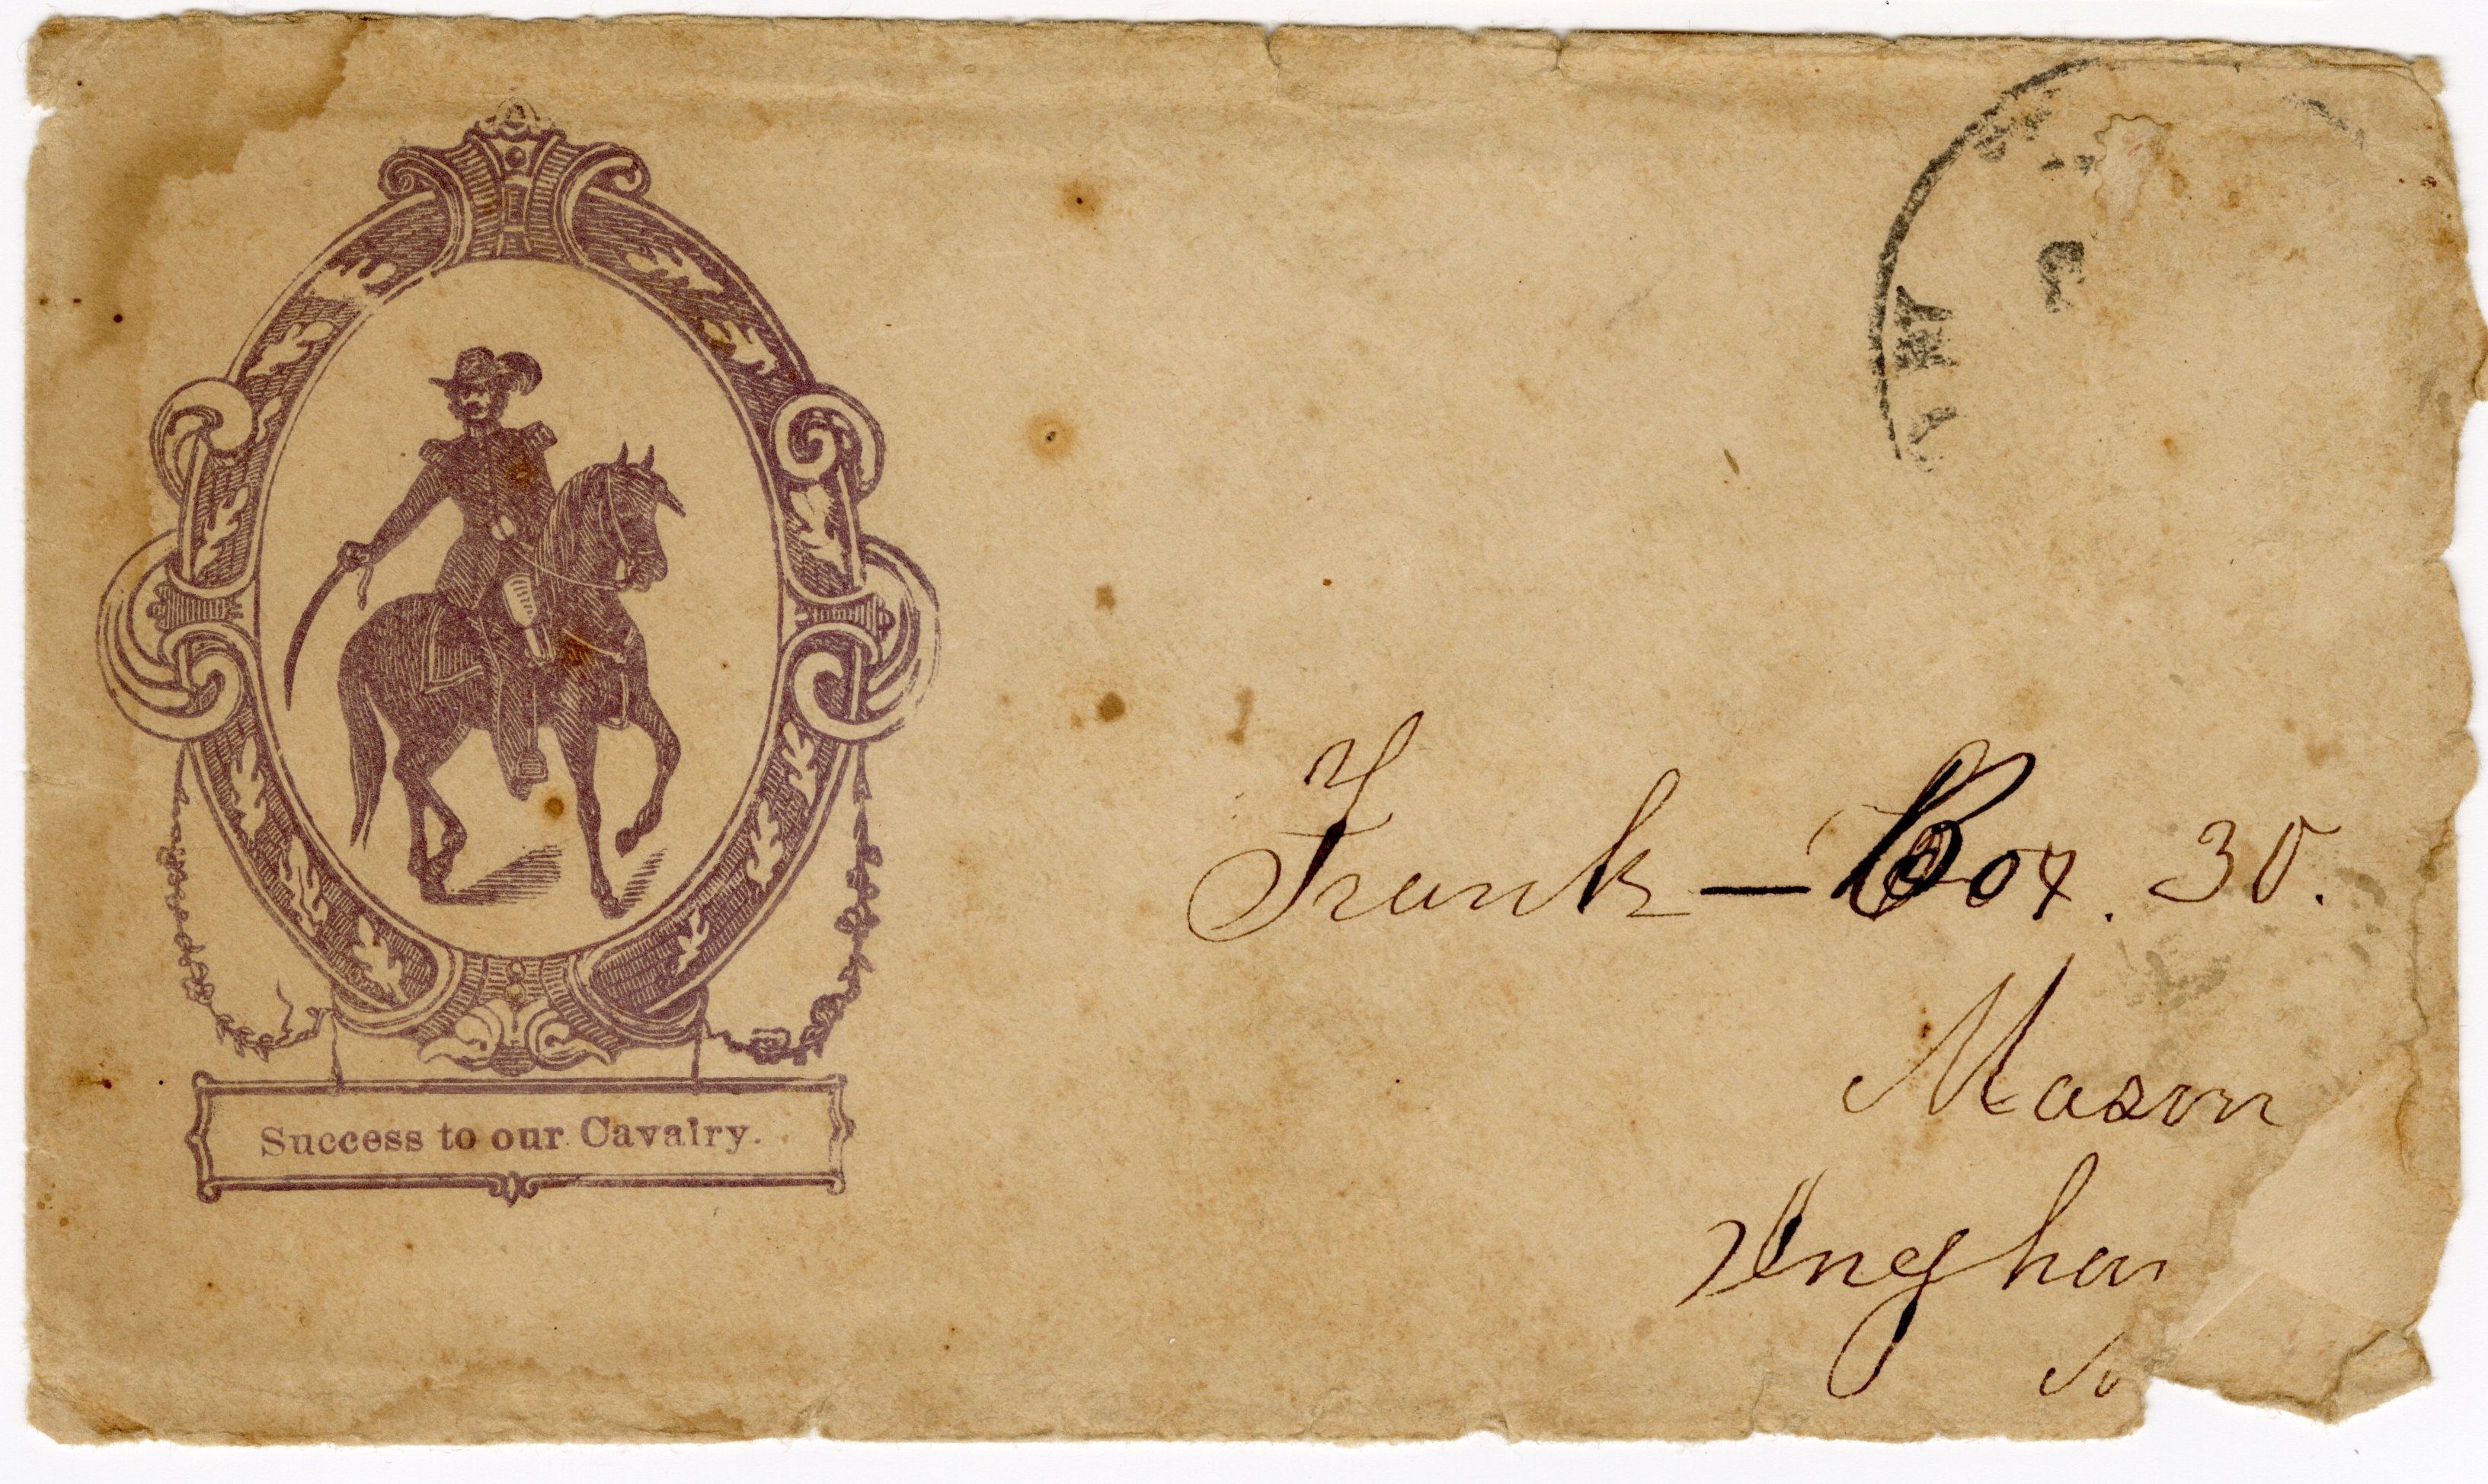 Success to our Cavalry.
Frank — Box. 30.
Mason
Ingham